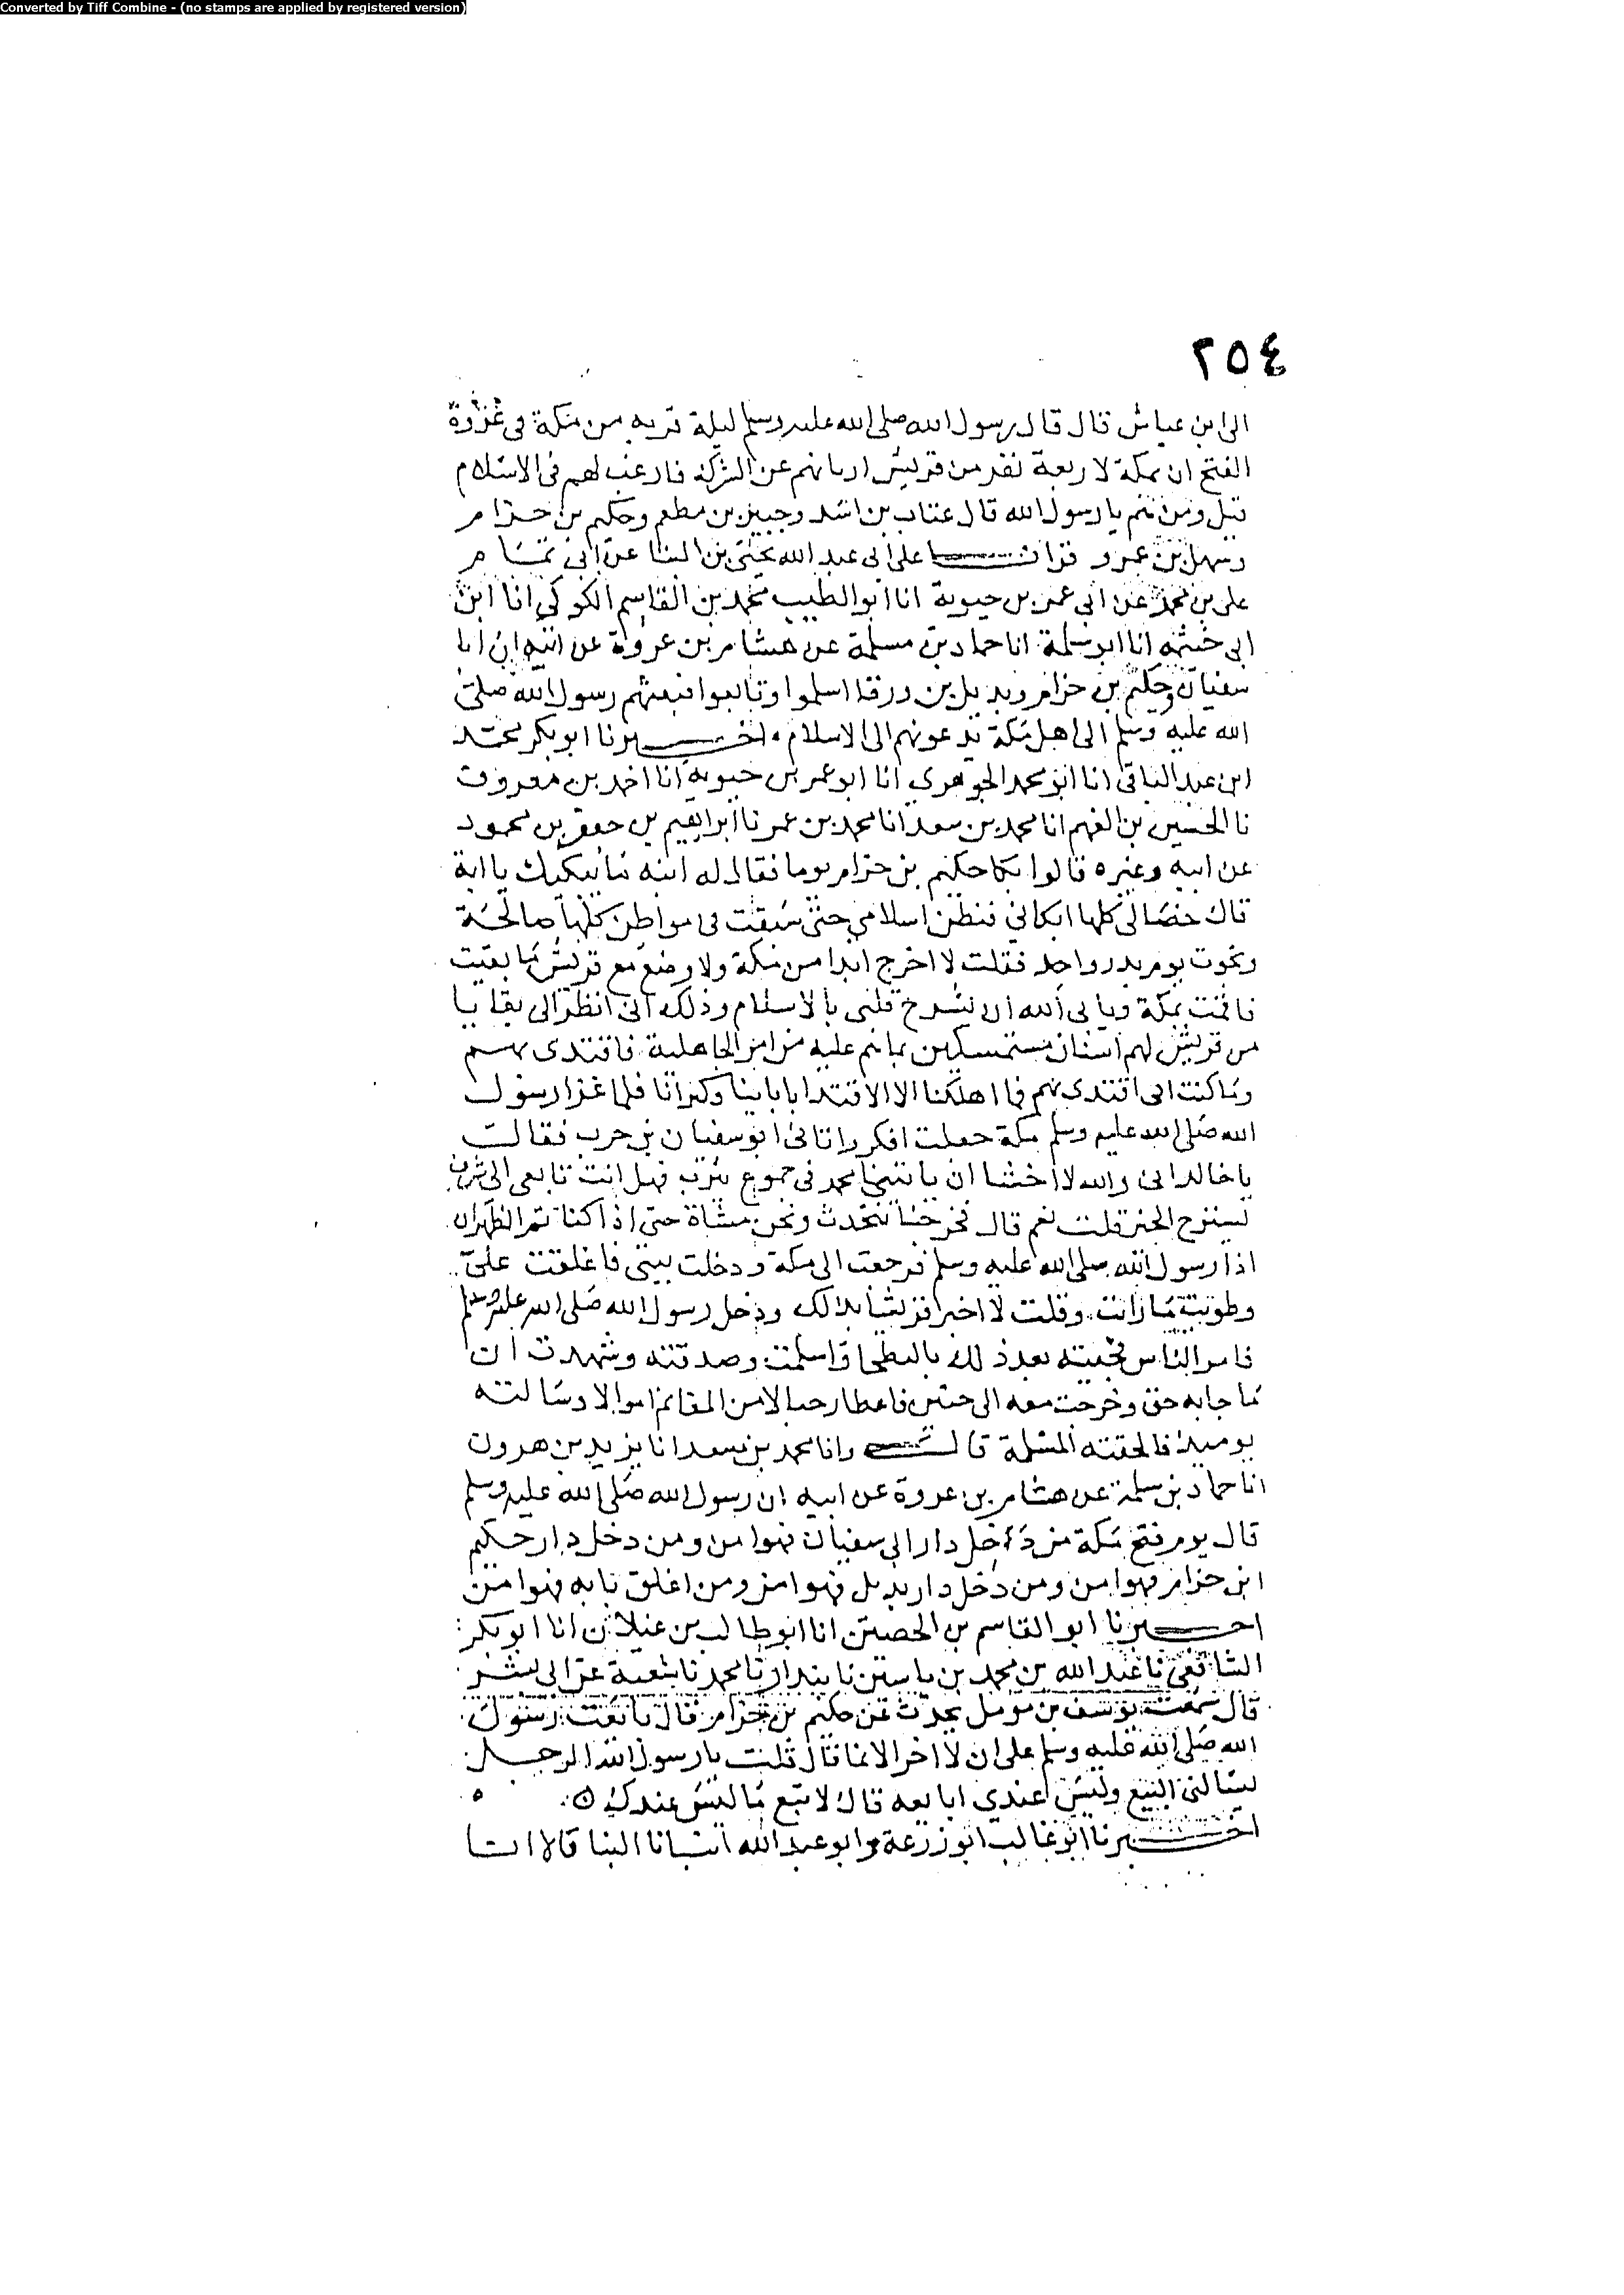 Converted by Tiff Combine - (no stamps are applied by registered version)
٢٥٤
الى ابن عباس قال قال رسول الله صلى الله عليه وسلم ليلة قربه من مكة في غزوة
الفتح ان بمكة لاربعة نفر من قريش اربانهم عن الشرك فارغب لهم في الاسلام
قيل ومن هم يا رسول الله قال عتاب بن اسد وجبير بن مطعم وحكيم بن حزام
وسهل بن عمرو قرات على ابي عبد الله يحيى بن البنا عن ابي تمام
علي بن محمد عن ابي عمر بن حيوية انا ابو الطيب محمد بن القاسم الكوكبي انا ابن
ابي خيثمة انا ابو سلمة انا حماد بن مسلمة عن هشام بن عروة عن ابيه ان ابا
سفيان وحكيم بن حزام وبديل بن ورقا اسلموا وتابعوا فبعثهم رسول الله صلى
الله عليه وسلم الى اهل مكة يدعونهم الى الاسلام اخبرنا ابو بكر محمد
ابن عبد الباقي انا ابو محمد الجوهري انا ابو عمر بن حيوية انا احمد بن معروف
نا الحسين بن الفهم انا محمد بن سعد انا محمد بن عمر نا ابراهيم بن جعفر بن محمود
عن ابيه وغيره قالوا بكا حكيم بن حزام يوما فقال له ابنه ما يبكيك يا ابة
قال خصال كلها ابكاني فبطئ اسلامي حتى سبقت في مواطن كلها صالحة
ونجوت يوم بدر واحد فقلت لا اخرج ابدا من مكة ولا وضع مع قريش ما بقيت
فاقمت بمكة ويابى الله ان يشرح قلبي بالاسلام وذلك اني انظر الى بقايا
من قريش لهم اسنان مستمسكين بما هم عليه من امر الجاهلية فاقتدى بهم
وما كنت اني اقتدي بهم فما اهلكنا الا الاقتدا بابائنا وكبرائنا فلما غزا رسول
الله صلى الله عليه وسلم مكة جعلت افكر واتاني ابو سفيان بن حرب فقال
يا خالد اني والله لاخشا ان ياتينا محمد في جموع يثرب فهل انت تابعي الى شرف
لسنروح الخبر قلت نعم قال فخرجنا نتحدث ونحن مشاة حتى اذا كنا بمر الظهران
اذا رسول الله صلى الله عليه وسلم فرجعت الى مكة ودخلت بيتي فاغلقته علي
وطويت ما رايت وقلت لا اخبر قريشا بذلك ودخل رسول الله صلى الله عليه وسلم
فامن الناس فجيته بعد ذلك بالبطحا فاسلمت وصدقته وشهدت ان
ما جا به حق وخرجت معه الى حنين فاعطا رجالا من المغانم اموالا وسالته
يوميذ فالحقته المسلمة قال وانا محمد بن سعد انا يزيد بن هرون
انا حماد بن سلمة عن هشام بن عروة عن ابيه ان رسول الله صلى الله عليه وسلم
قال يوم فتح مكة من دخل دار ابي سفيان فهو امن ومن دخل دار حكيم
ابن حزام فهو امن ومن دخل دار بديل فهو امن ومن اغلق بابه فهو امن
اخبرنا ابو القاسم بن الحصين انا ابو طالب بن غيلان انا ابو بكر
الشافعي نا عبد الله بن محمد بن ياسين نا بندار نا محمد نا شعبة عن ابي بشر
قال سمعت يوسف بن مومل يحدث عن حكيم بن حزام قال بايعت رسول
الله صلى الله عليه وسلم على ان لا اخر الا نما قال قلت يا رسول الله الرجل
يسالني البيع وليس عندي ابايعه قال لا تبع ما ليس عندك
اخبرنا ابو غالب ابو زرعة وابو عبد الله انبانا البنا قالا انبا